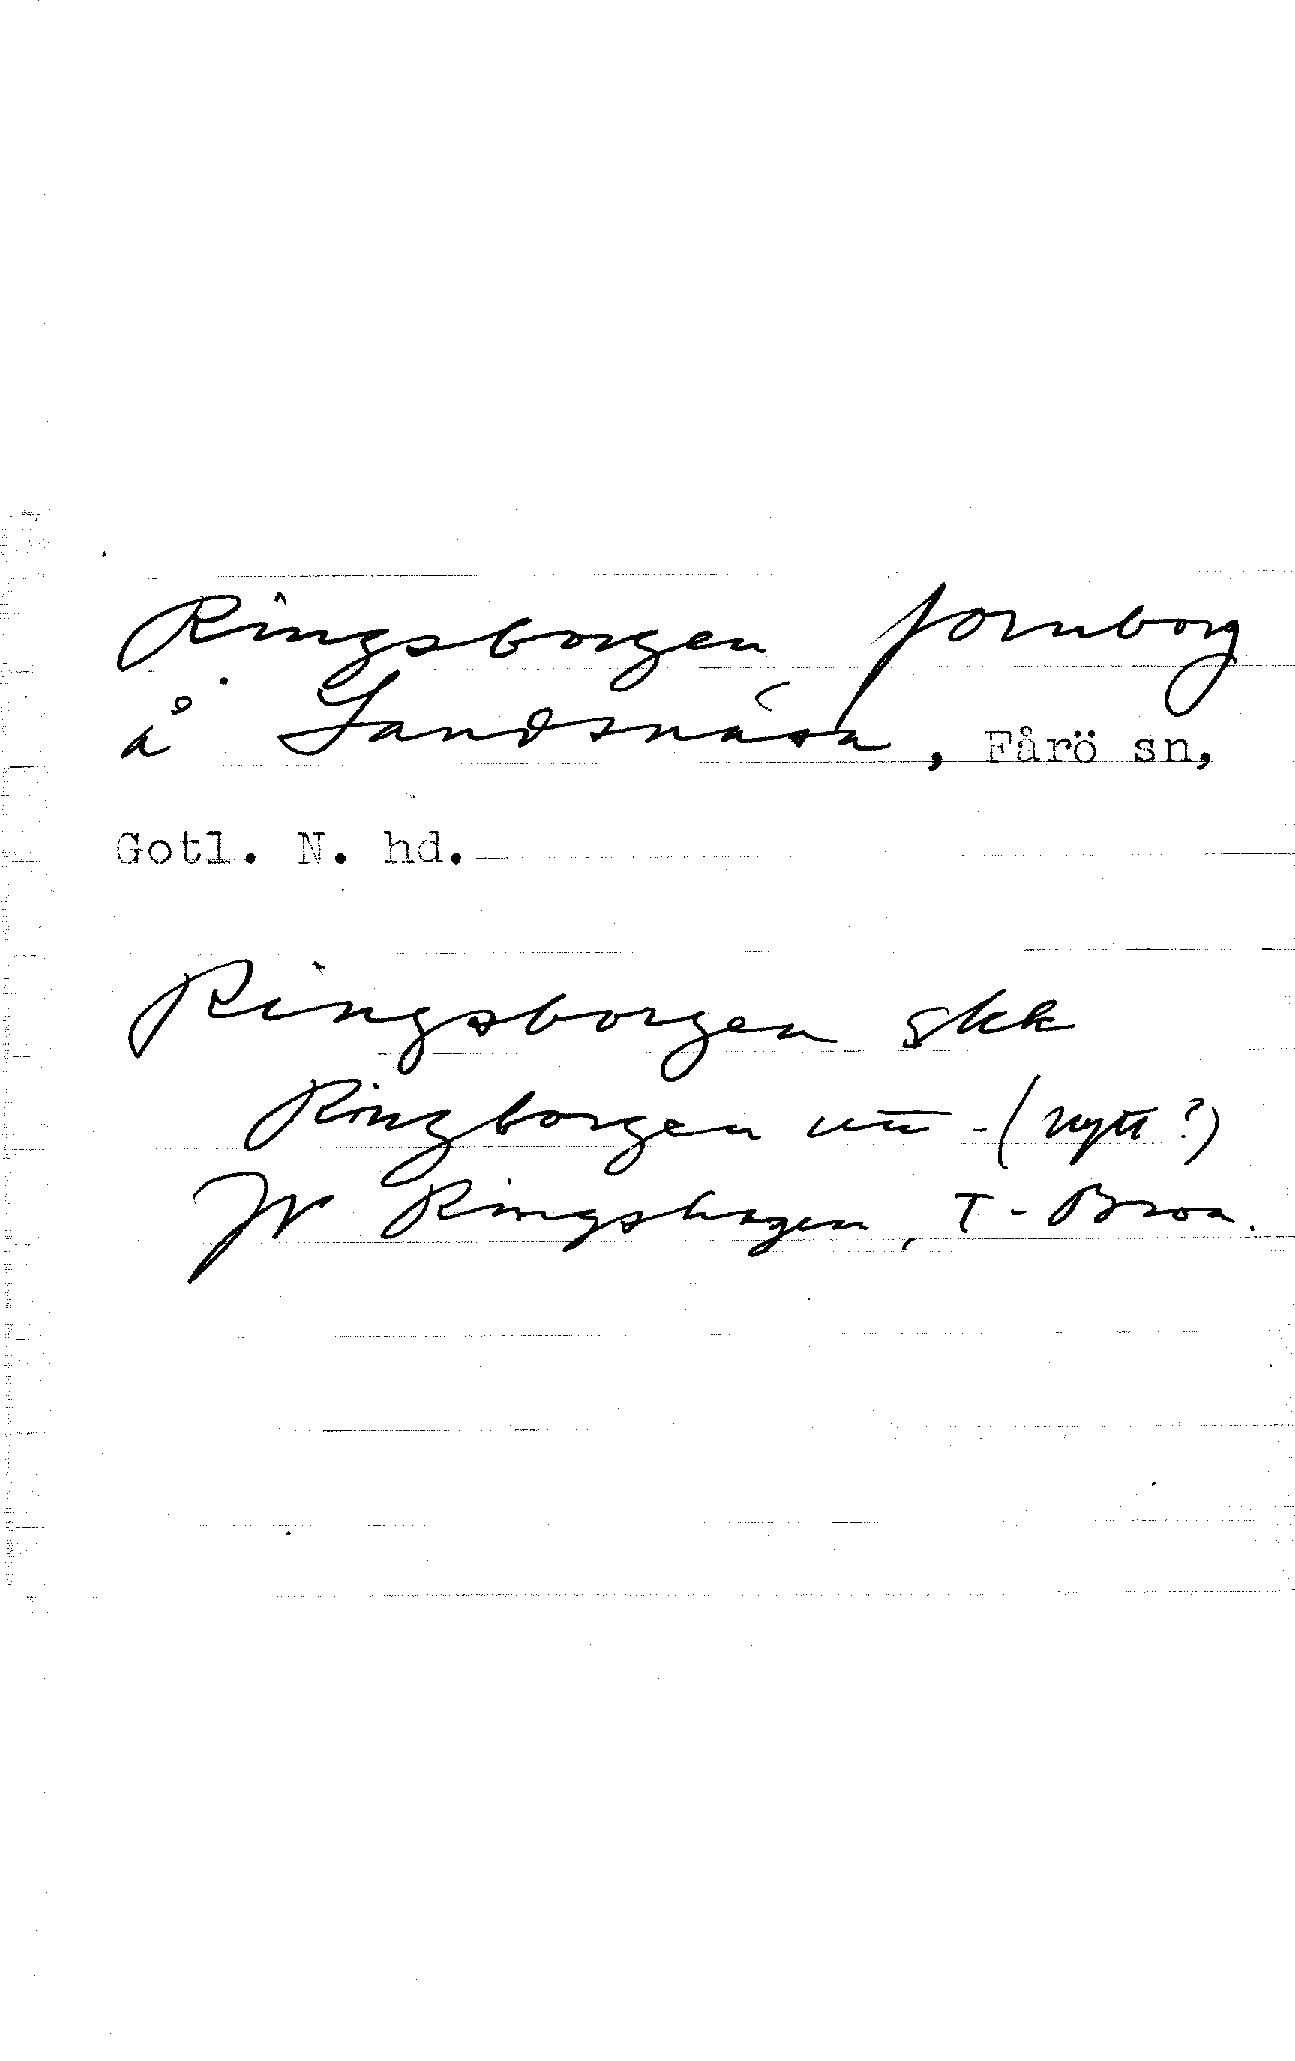 Ringsborgen fornborg
å Landsnäsa, Fårö sn,
Gotl. N. hd.
Ringsborgen skk
Ringborgen (nytt?)
Jr Ringshagen, T-Broa.